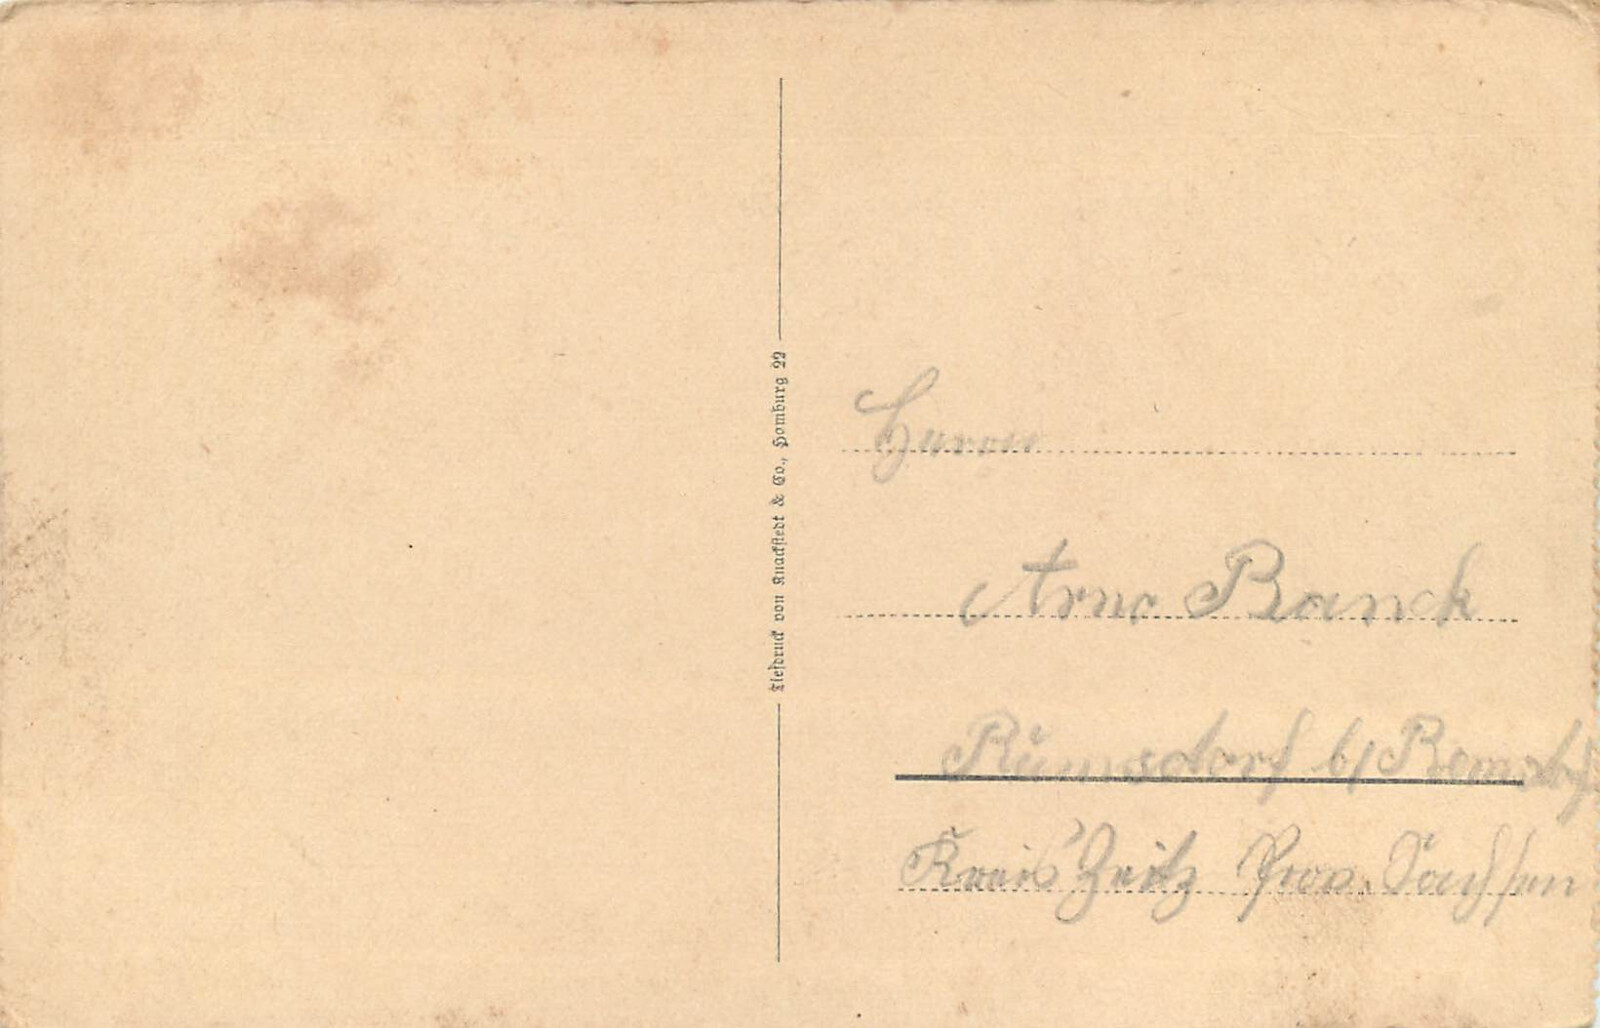 Tiefdruck von Knackstedt & Co., Hamburg 22
Herrn
Arno Ranck
Rumsdorf b/ Remsdf
Kreis Zeitz Prov. Sachsen